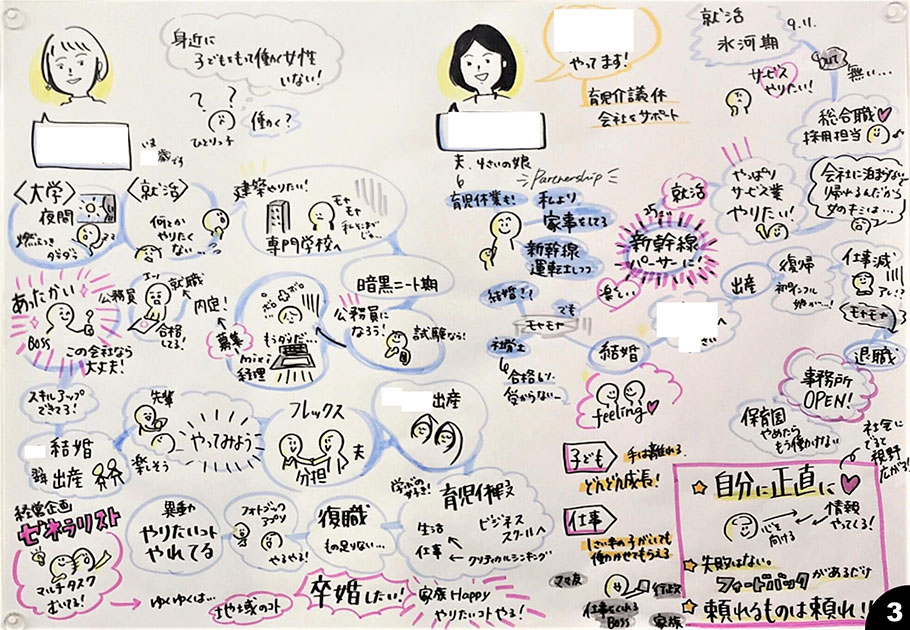 身近に
子どももって働く女性
いない!
? ?
働く?
ひとりっ子
いま
です
〈大学〉
夜間
燃えつき
ダラダラ
〈就活〉
何とか
やりたく
ない…っ
建築やりたい!
モヤ
モヤ
専門学校へ
暗黒ニート期
公務員に
なろう!
試験なら!
もうダメだ…
mixi
経理
募集
内定!
就職
公務員
合格
してる!
あったかい
BOSS
この会社なら
大丈夫!
スキルアップ
できてる!
結婚
翌年 出産
先輩
楽しそう
やってみよう
フレックス
夫
分担
出産
学ぶの
好き!
育児休暇
ビジネス
スクールへ
クリティカルシンキング
生活
仕事
復職
もの足りない…
フォトブック
アプリ
やるやる!
異動
やりたいコト
やれてる
経営企画
ゼネラリスト
マルチタスク
むいてる!
→ ゆくゆくは…
地域のコト
卒婚したい!
家族Happy
やりたいコトやる!
やってます!
育児介護休
会社をサポート
夫、4さいの娘
育児休業も!
Partnership
私より
家事をしてる
新幹線
運転士しつつ
就活
氷河期
9.11.
out
無い…
サービス
やりたい!
総合職♡
採用担当
会社に泊まらない
帰れるんだから
女のキミは…
やっぱり
サービス業
やりたい!
就活
25才
新幹線
パーサーに!
楽しい
結婚して
でも
モヤモヤ
社労士
合格6%
受からない…
結婚
feeling♡
さい
へ
出産
復帰
仕事減
アレ!?
モヤモヤ
退職
事務所
OPEN!
保育園
やめたら
もう働かない
社会に
でると
視野
広がる!
子ども
手は離れる
どんどん成長!
仕事
1さい半の子がいても
働かせてもらえる
ママ友
行政
仕事をくれる
BOSS
家族
☆自分に正直に♡
心を
向ける
情報
やってくる!
☆失敗はない。
フィードバックがあるだけ
☆頼れるものは頼れ!!
3